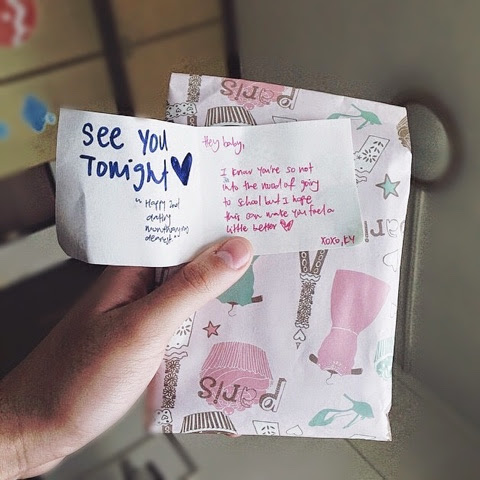 See You
Tonight
"Happy 2nd
dating
monthsary
dearest"
Hey baby,
I know you're so not
into the mood of going
to school but I hope
this can make you feel a
little better
XOXO, KY
paris
paris